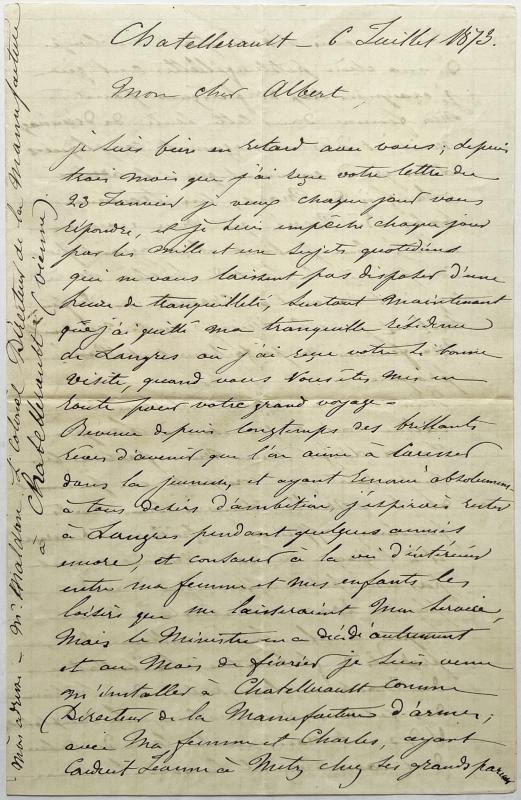 Chatellerault – 6 Juillet 1873.
Mon cher Albert,
je suis bien en retard avec vous; depuis
trois mois que j'ai reçu votre lettre du
23 Janvier je veux chaque jour vous
répondre, et je suis empêché chaque jour
par les mille et un sujets quotidiens
qui ne vous laissent pas disposer d'une
heure de tranquillité, surtout maintenant
que j'ai quitté ma tranquille résidence
de Langres où j'ai reçu votre si bonne
visite, quand vous vous êtes mis en
route pour votre grand voyage –
Revenu depuis longtemps des brillants
rêves d'avenir que l'on aime à caresser
dans la jeunesse, et ayant renoncé absolument
à tous désirs d'ambition j'espérais rester
à Langres pendant quelques années
encore, et consacrer à la vie d'intérieur
entre ma femme et mes enfants les
loisirs que me laisseraient mon service,
Mais le Ministre en a décidé autrement
et au mois de février je suis venu
m'installer à Chatellerault comme
Directeur de la Manufacture d'armes;
avec ma femme et Charles, ayant
conduit Jeanne à Metz chez ses grands parents
Mon adresse – Mr. Lt Colonel Directeur de la Manufacture
à Chatellerault (Vienne)